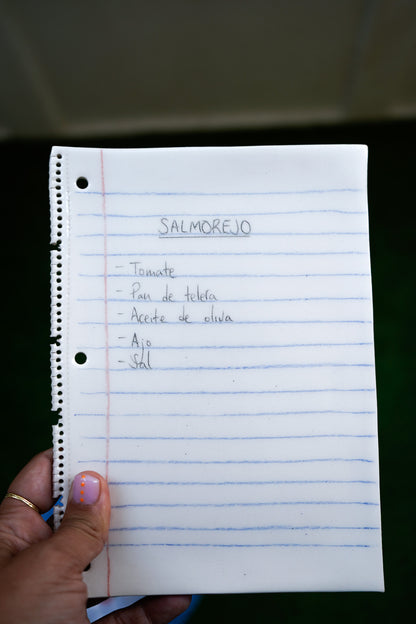 SALMOREJO
- Tomate
- Pan de telera
- Aceite de oliva
- Ajo
- Sal